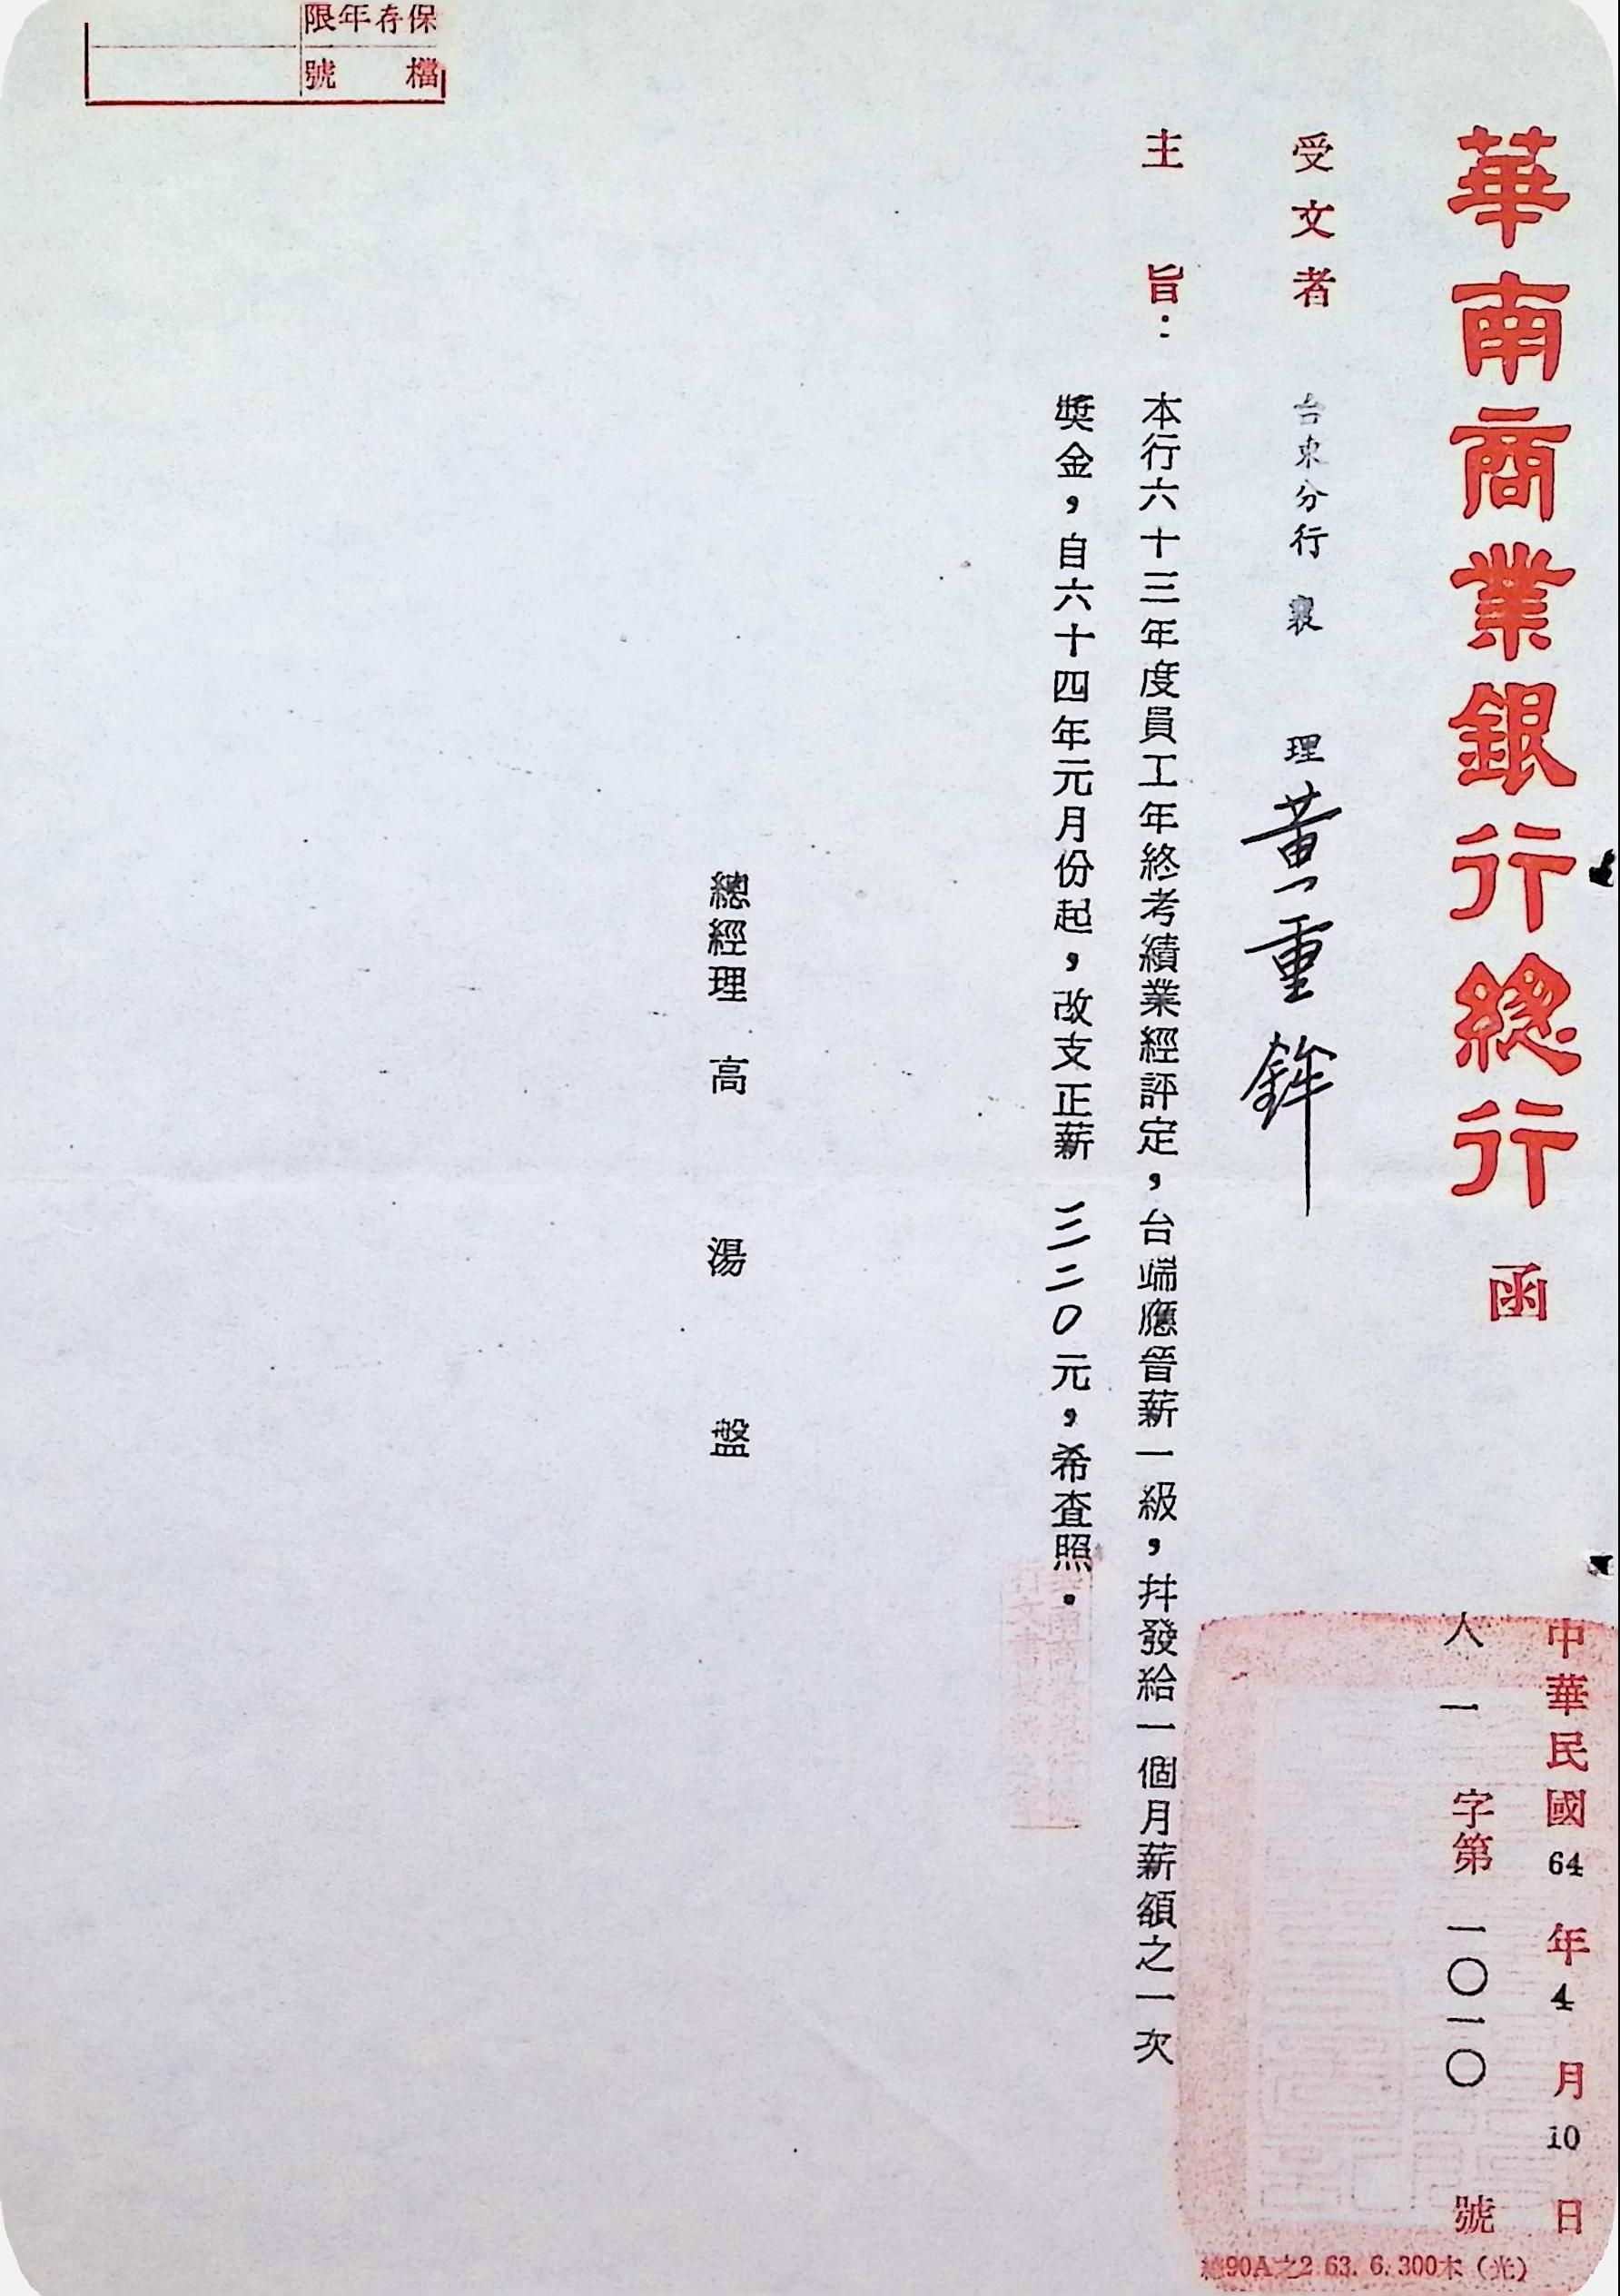 華南商業銀行總行 函
中華民國64年4月10日
人一字第一〇一〇號
受文者 台東分行 襄理 黃重鉾
主旨：本行六十三年度員工年終考績業經評定，台端應晉薪一級，幷發給一個月薪額之一次
奬金，自六十四年元月份起，改支正薪三二〇元，希查照．
總經理 高湯盤
保存年限
檔號
總90A之2 63. 6. 300本（光）